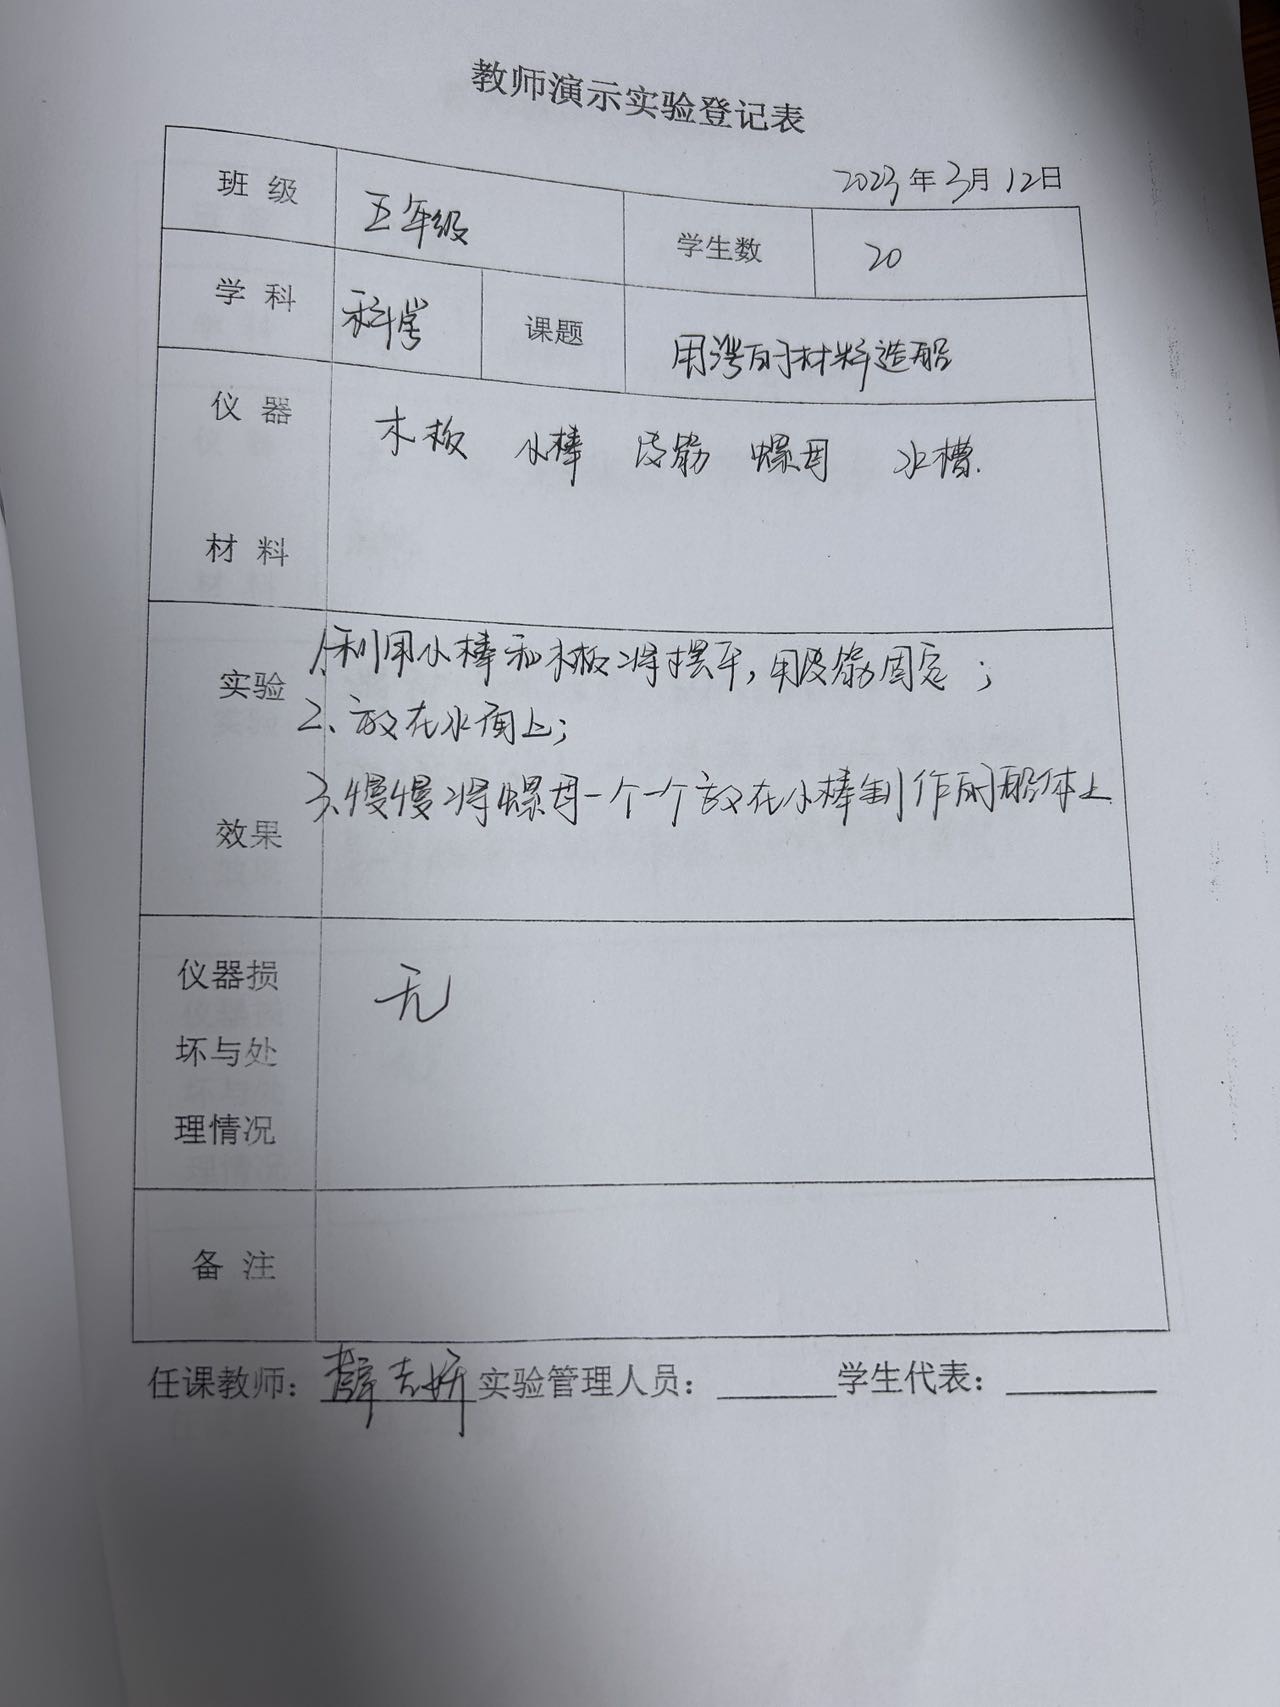 教师演示实验登记表
2023年3月12日
班 级 五年级 学生数 20
学 科 科学 课题 用浮的材料造船
仪 器 木板 小棒 皮筋 螺母 水槽.
材 料
实验 1.利用小棒和木板将摆平,用皮筋固定;
2、放在水面上;
3、慢慢将螺母一个一个放在小棒制作的船体上
效果
仪器损 无
坏与处
理情况
备 注
任课教师: 实验管理人员: 学生代表: